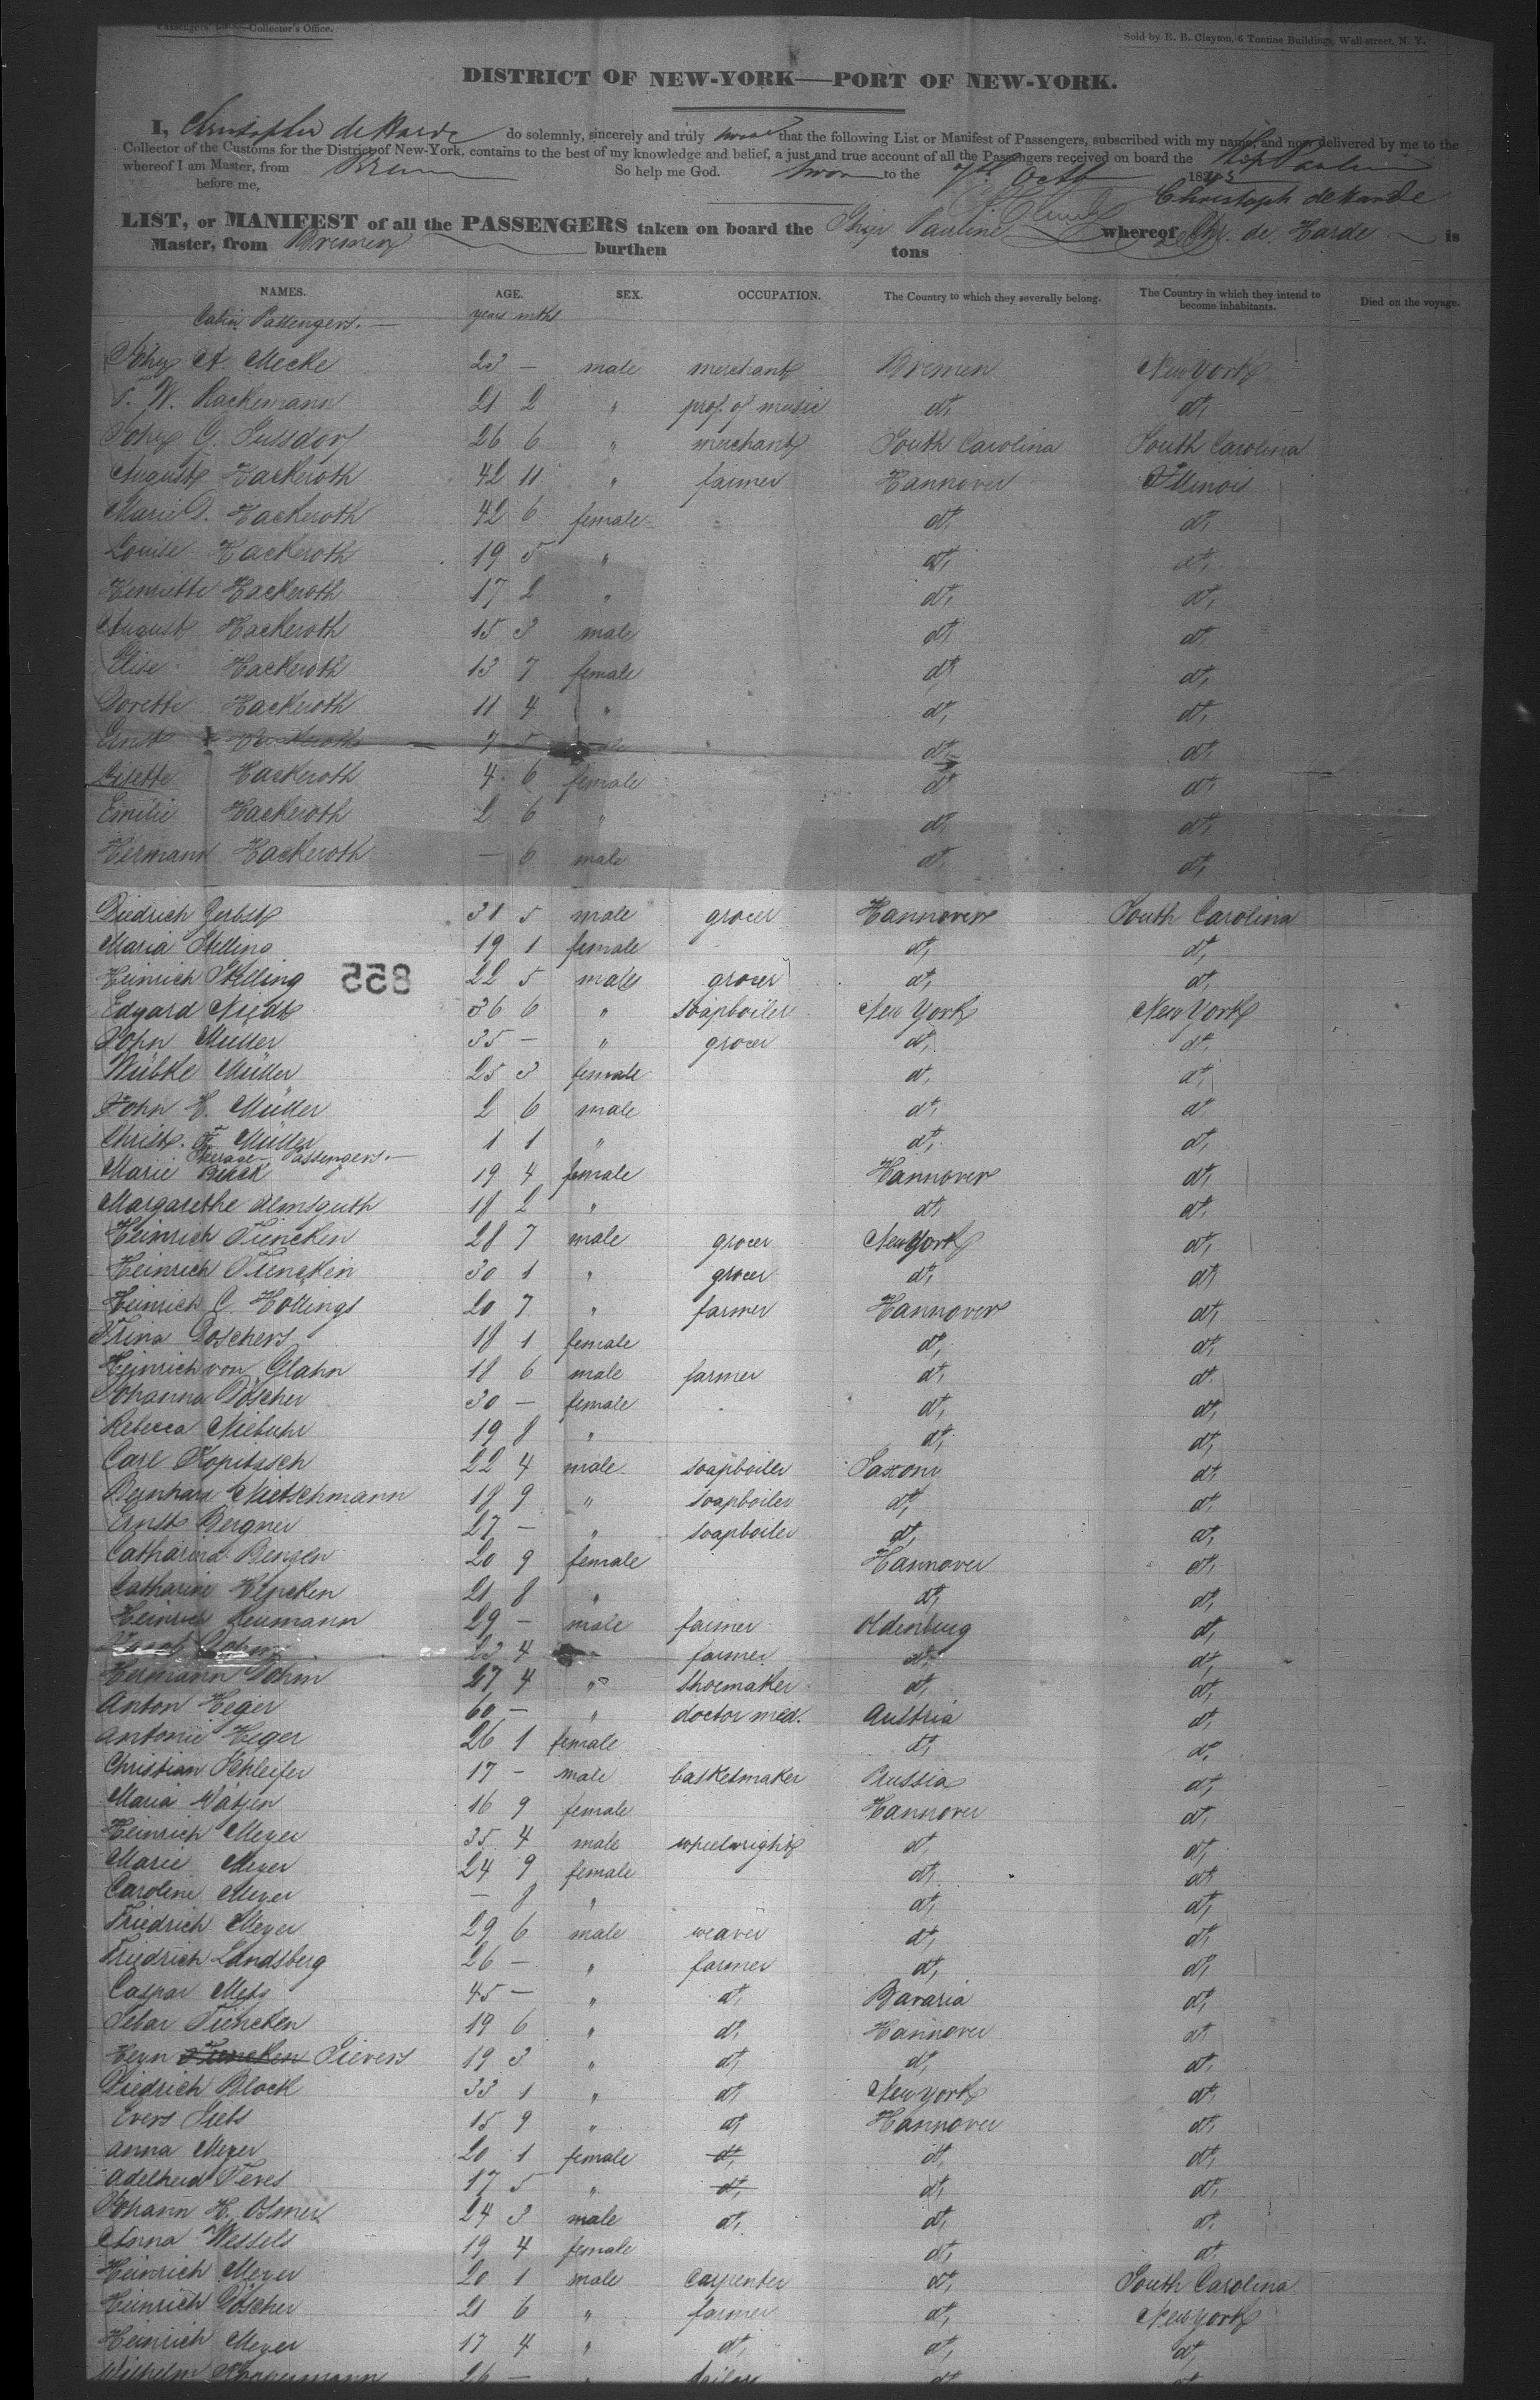 Passengers' List—Collector's Office.
Sold by E. B. Clayton, 6 Tontine Buildings, Wall-street, N. Y.
DISTRICT OF NEW-YORK—PORT OF NEW-YORK.
I, Christopher de Harde do solemnly, sincerely and truly swear that the following List or Manifest of Passengers, subscribed with my name, and now delivered by me to the
Collector of the Customs for the District of New-York, contains to the best of my knowledge and belief, a just and true account of all the Passengers received on board the Ship Pauline
whereof I am Master, from Bremen So help me God. Sworn to the 7th Octb 1843
before me, Christoph de Harde
LIST, or MANIFEST of all the PASSENGERS taken on board the Ship Pauline whereof Chr. de Harde is
Master, from Bremen burthen tons
NAMES. AGE. SEX. OCCUPATION. The Country to which they severally belong. The Country in which they intend to become inhabitants. Died on the voyage.
Cabin Passengers.— years mths
John A. Mecke 23 — male merchant Bremen New York
F. W. Rackemann 21 2 " prof. of music dt, dt,
John G. Sussdorf 26 6 " merchant South Carolina South Carolina
August Hackeroth 42 11 " farmer Hannover Illinois
Marie D. Hackeroth 42 6 female dt, dt,
Louise Hackeroth 19 5 " dt, dt,
Henriette Hackeroth 17 2 " dt, dt,
August Hackeroth 15 3 male dt, dt
Elise Hackeroth 13 7 female dt, dt,
Dorette Hackeroth 11 4 " dt, dt,
Ernst Hackeroth 7 5 male dt, dt,
Lisette Hackeroth 4 6 female dt dt,
Emilie Hackeroth 2 6 " dt, dt,
Hermann Hackeroth — 6 male dt, dt,
Diedrich Gerbst 31 5 male grocer Hannover South Carolina
Maria Stelling 19 1 female dt, dt,
Heinrich Stelling 22 5 male grocer dt, dt,
855
Edgard Niedt 36 6 " soapboiler New York New York
John Müller 35 — " grocer dt, dt,
Wübke Müller 25 3 female dt, dt,
John H. Müller 2 6 male dt, dt
Christ. F. Müller 1 1 " dt, dt,
Steerage Passengers.—
Marie Beack 19 4 female Hannover dt,
Margarethe Almsguth 18 2 " dt, dt,
Heinrich Tiencken 28 7 male grocer New York dt,
Heinrich Tiencken 30 1 " grocer dt, dt,
Heinrich C. Hollings 20 7 " farmer Hannover dt,
Trina Doschers 18 1 female dt, dt,
Heinrich von Glahn 18 6 male farmer dt, dt.
Johanna Döscher 30 — female dt, dt,
Rebecca Niebuhr 19 8 " dt, dt,
Carl Kopitzsch 22 4 male soapboiler Saxony dt
Bernhard Nietschmann 18 9 " soapboiler dt, dt,
Ernst Bergner 27 — " soapboiler dt, dt,
Catharina Benzen 20 9 female Hannover dt,
Catharine Hencken 21 8 " dt, dt,
Heinrich Neumann 29 — male farmer Oldenburg dt,
23 4 farmer dt, dt,
Hermann Dohm 27 4 " shoemaker dt, dt,
Anton Heger 60 — " doctor med. Austria dt,
Antonie Heger 26 1 female dt, dt,
Christian Schleifer 17 — male basketmaker Prussia dt,
Maria Wätjen 16 9 female Hannover dt,
Heinrich Meyer 35 4 male wheelwright dt dt,
Marie Meyer 24 9 female dt, dt,
Caroline Meyer — 8 " dt, dt,
Friedrich Meyer 29 6 male weaver dt, dt,
Friedrich Landsberg 26 — " farmer dt, dt,
Caspar Mets 45 — " dt, Bavaria dt,
Silar Tiencken 19 6 " dt, Hannover dt
Heyn Tiencken Sievers 19 3 " dt, dt, dt,
Diedrich Block 33 1 " dt, New York dt,
Evers Siebs 15 9 " dt, Hannover dt,
Anna Meyer 20 1 female dt, dt, dt,
Adelheid Feres 17 5 " dt, dt, dt,
Johann H. Osmer 24 3 male dt, dt, dt,
Anna Wessels 19 4 female dt, dt
Heinrich Meyer 20 1 male carpenter dt, South Carolina
Heinrich Döscher 21 6 " farmer dt, New York
Heinrich Meyer 17 4 " dt, dt, dt,
Wilhelm 26 — " tailor dt dt